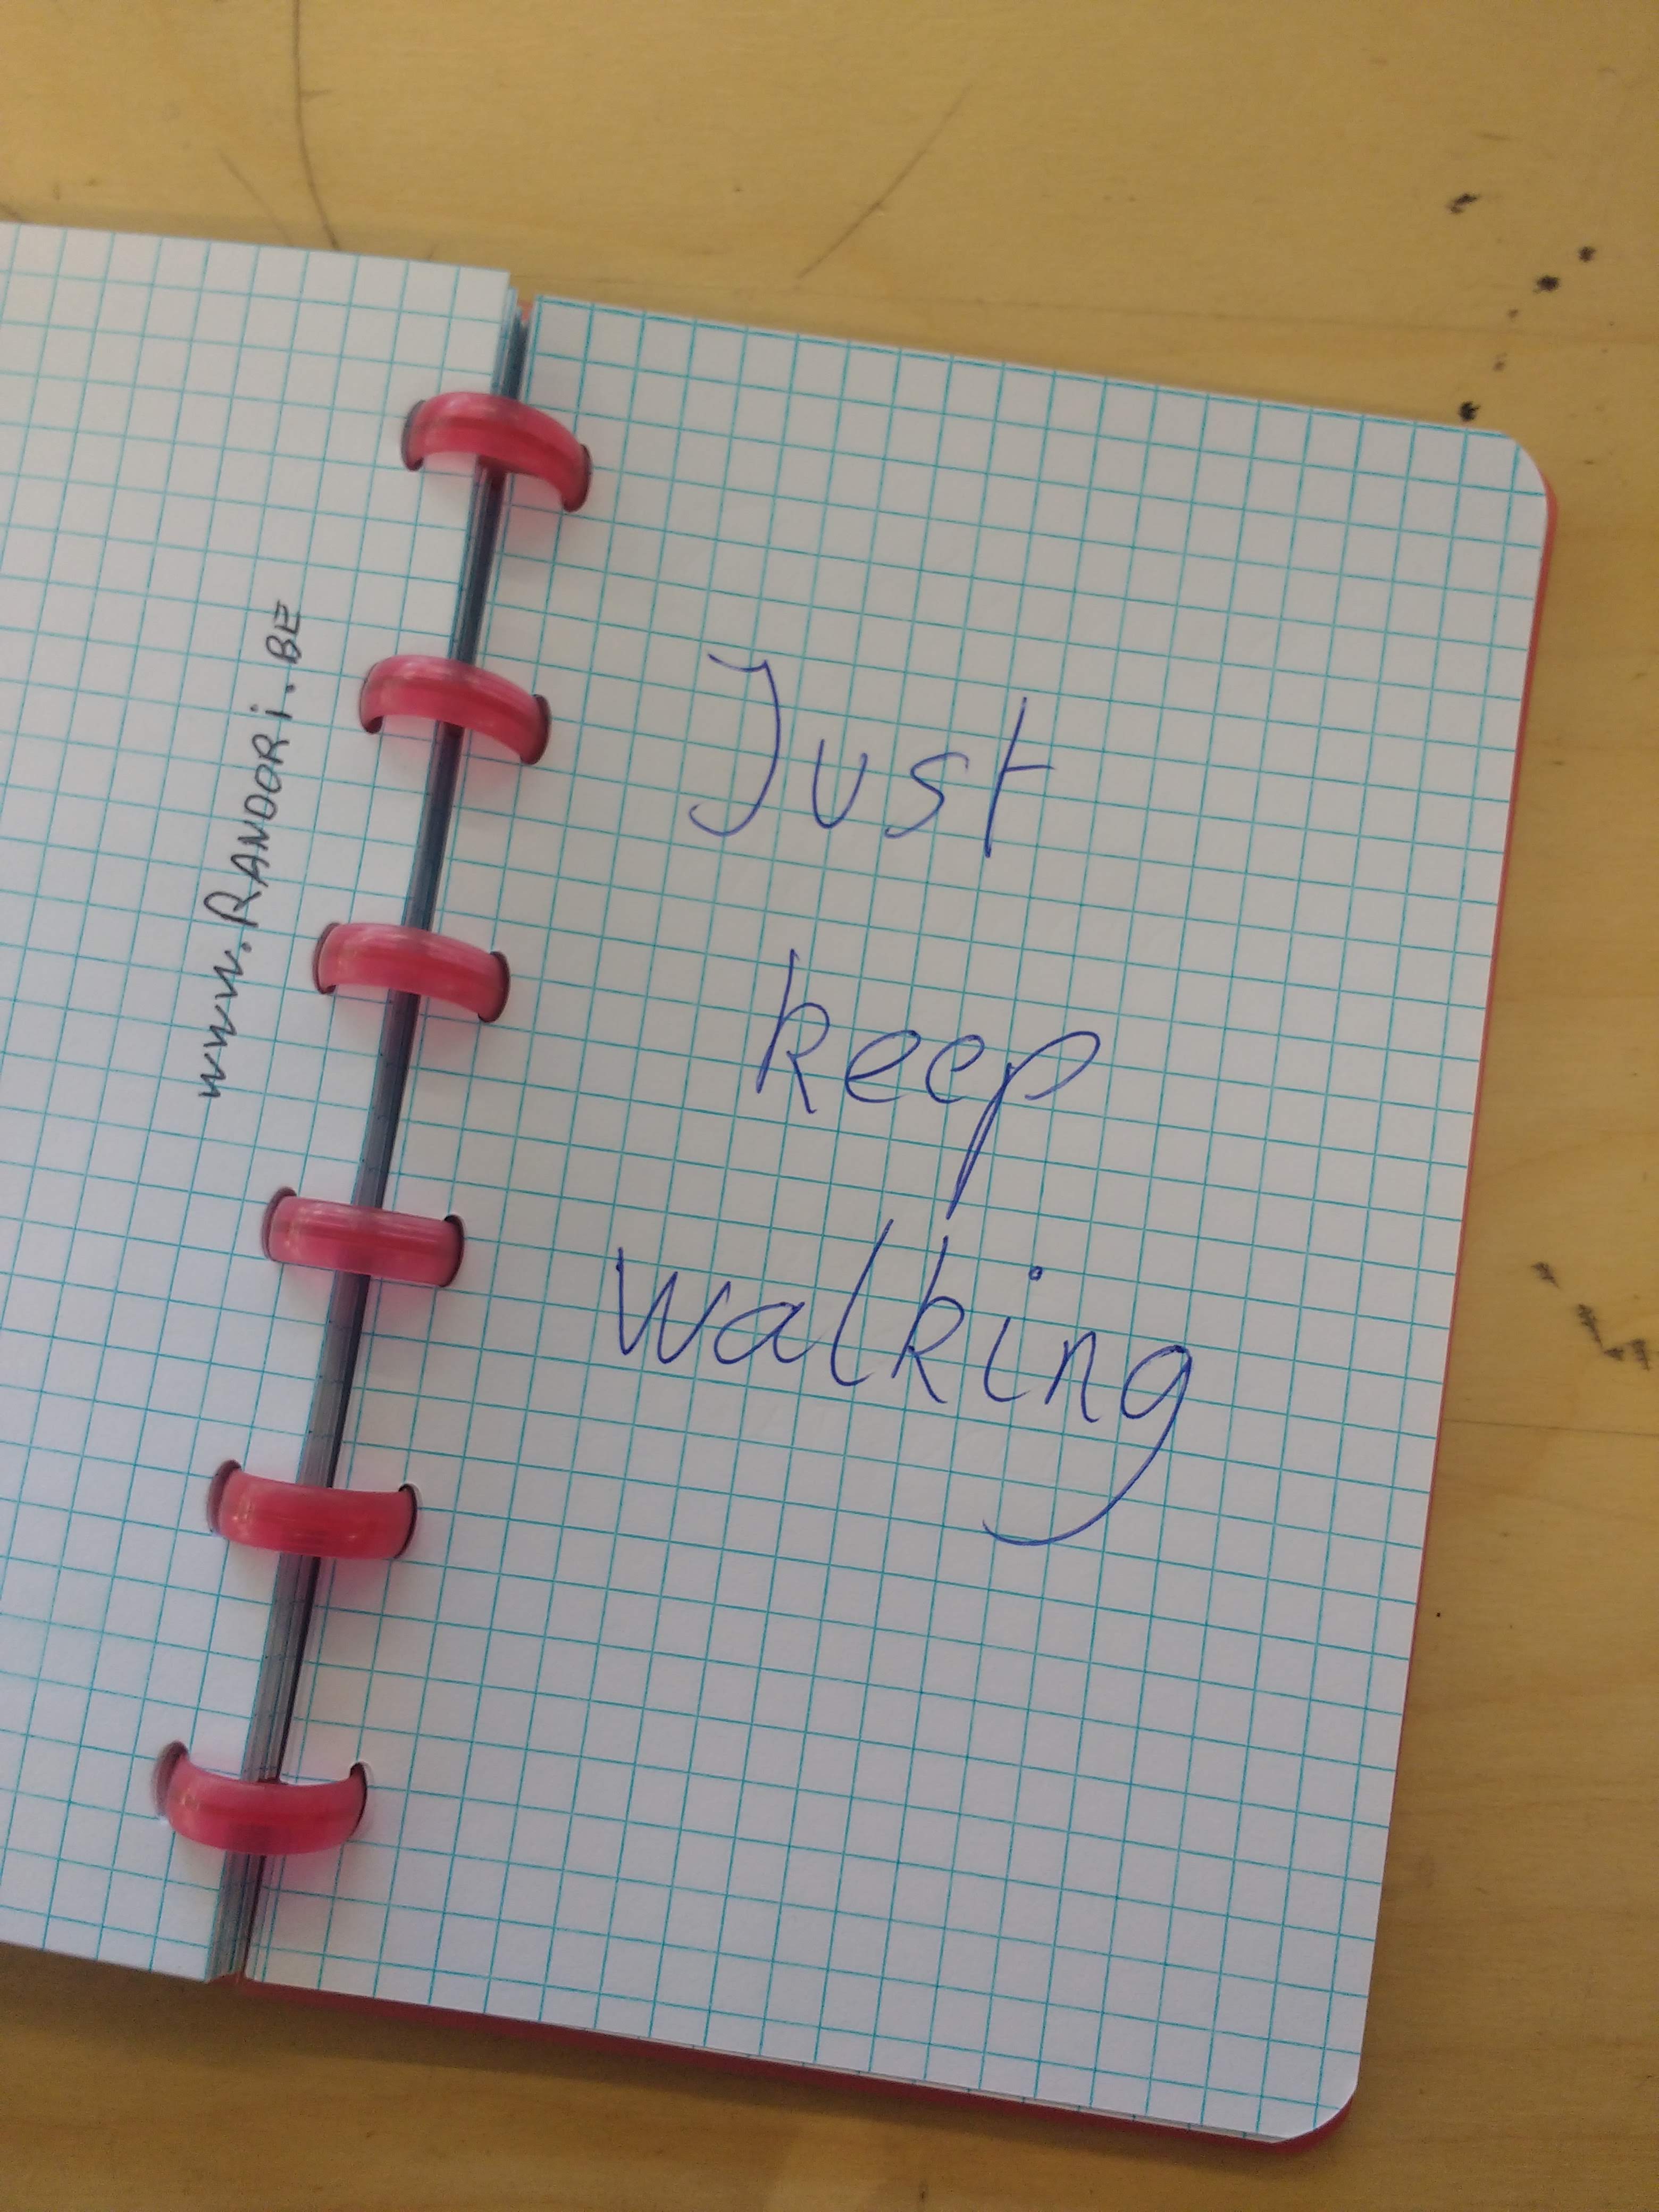 www.RANDORi.BE
Just
keep
walking